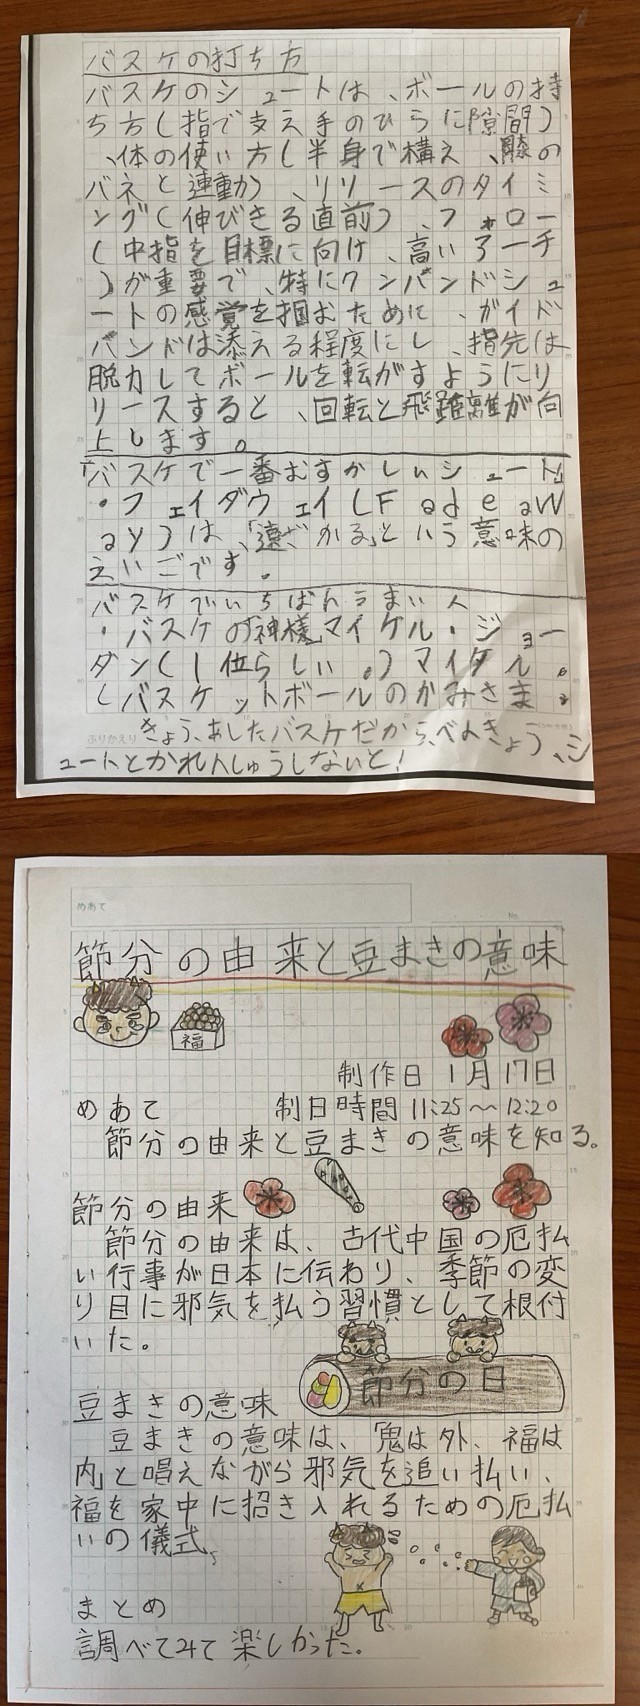 バスケの打ち方
バスケのシュートは、ボールの持
ち方(指で支え手のひらに隙間)
、体の使い方(半身で構え、膝の
バネと連動)、リリースのタイミ
ング(伸びきる直前)、フォロー
(中指を目標に向け、高いアーチ
)が重要で、特にワンハンドシュ
ートの感覚を掴むために、ガイド
ハンドは添える程度にし、指先は
脱力してボールを転がすようにリ
リースすると、回転と飛距離が向
上します。
「バスケで一番むずかしいシュート」
・フェイダウェイ(Fadeaw
ay)は、「遠ざかる」という意味の
えいごです。
バスケでいちばんうまい人
・バスケの「神様」マイケル・ジョー
ダン(1位らしい。)マイケル。
(バスケットボールのかみさま。
ふりかえり きょう、あしたバスケだから、べんきょう、シ
ュートとかれんしゅうしないと!
めあて
No.
節分の由来と豆まきの意味
福
制作日 1月17日
めあて 制日時間 11:25〜12:20
節分の由来と豆まきの意味を知る。
節分の由来
節分の由来は、古代中国の厄払
い行事が日本に伝わり、季節の変
り目に邪気を払う習慣として根付
いた。
節分の日
豆まきの意味
豆まきの意味は、鬼は外、福は
内と唱えながら邪気を追い払い、
福を家中に招き入れるための厄払
いの儀式。
まとめ
調べてみて楽しかった。